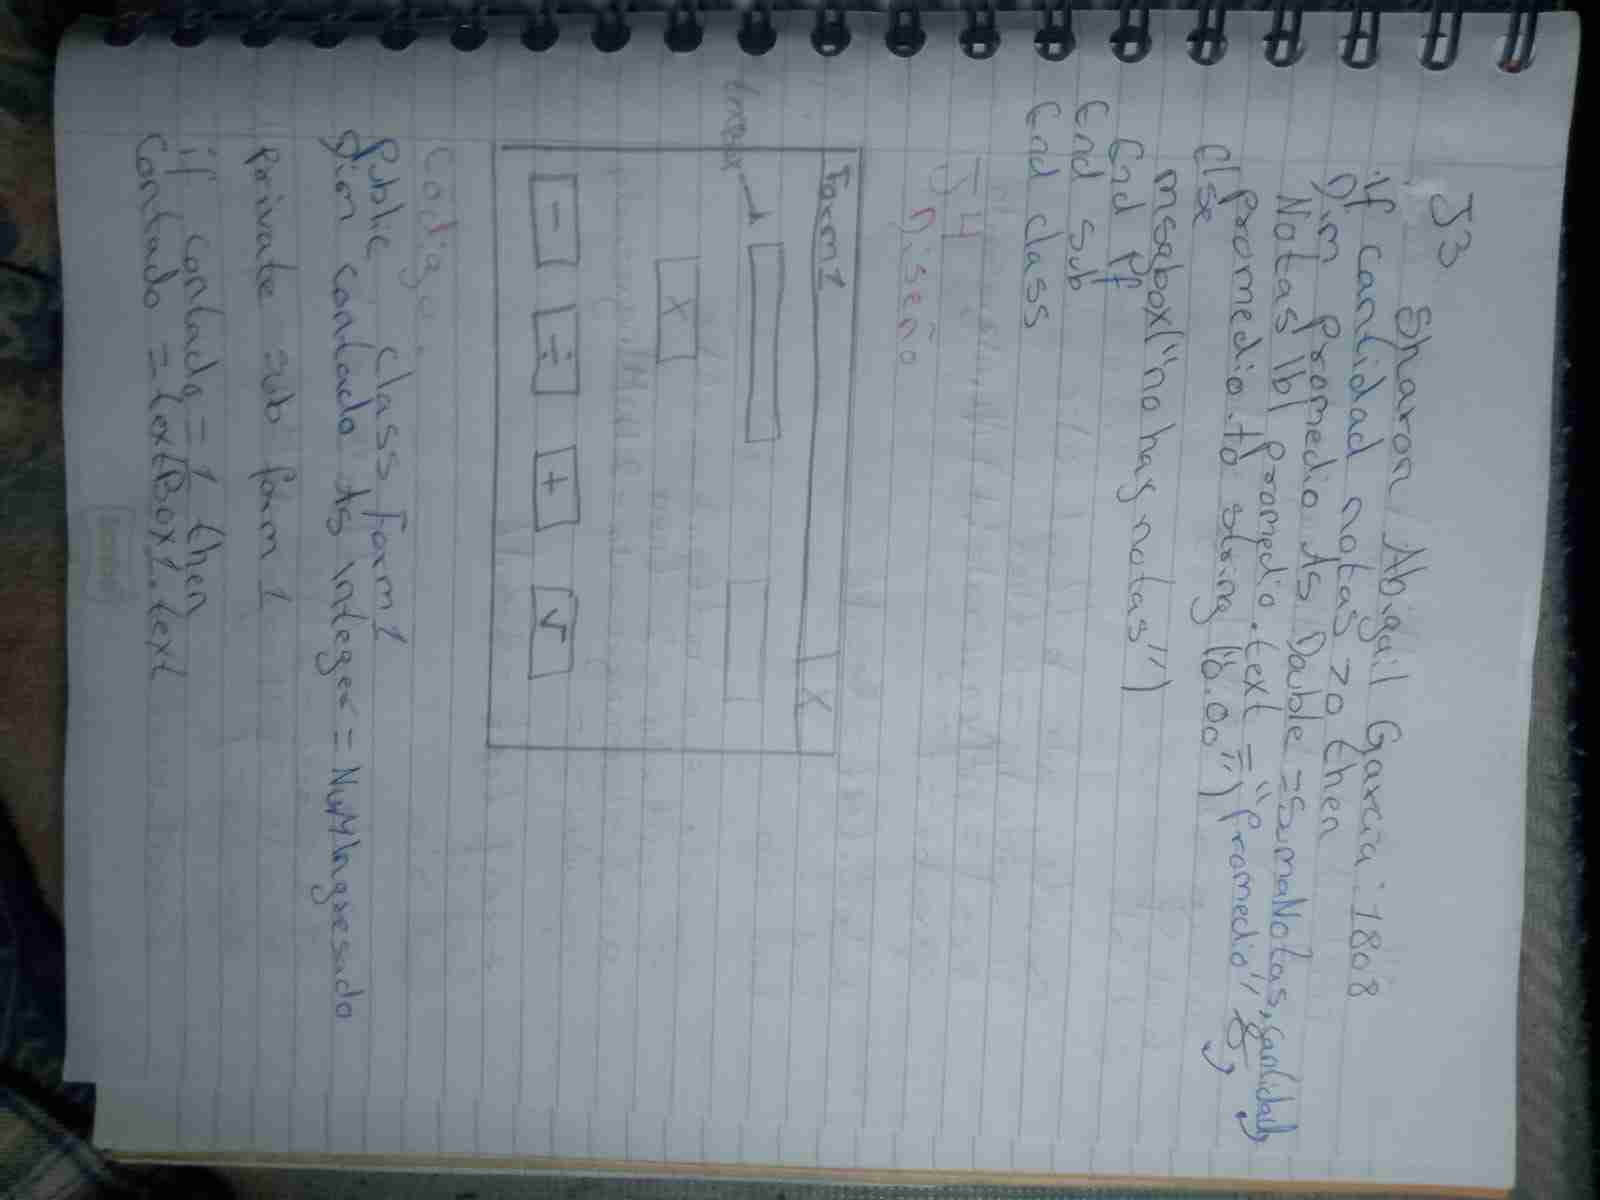 J3 Sharon Abigail Garcia :1808
if cantidad notas >0 then
Dim promedio As Double = sumaNotas, cantidad,
Notas lbl promedio.text = "promedio", &,
promedio.to string ("0.00")
Else
msgbox("no hay notas")
End if
End sub
End class
J4
Diseño
Form1 X
X
- ÷ + √
Codigo.
Public class Form1
Dim contado As Integer = NuMIngresado
Private sub form 1
if contado = 1 then
Contado = textBox1.text